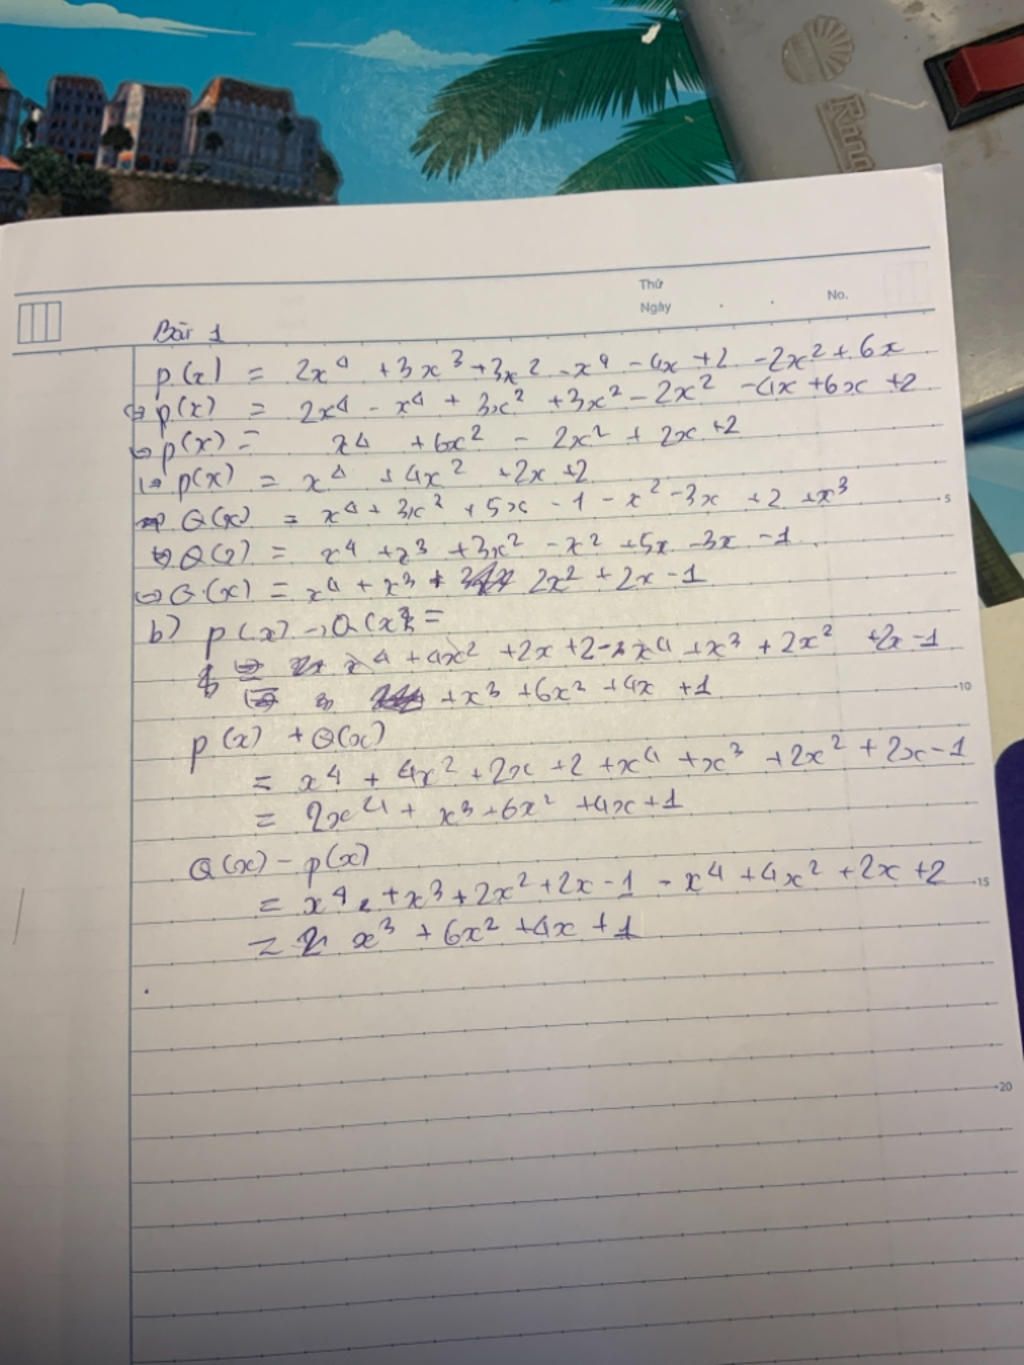 Thứ
Ngày . . No.
Bài 1
P(x) = 2x⁴ + 3x³ + 3x² - x⁴ - 4x + 2 - 2x² + 6x
⇔ P(x) = 2x⁴ - x⁴ + 3x² + 3x² - 2x² - 4x + 6x + 2
⇔ P(x) = x⁴ + 6x² - 2x² + 2x + 2
⇔ P(x) = x⁴ + 4x² + 2x + 2
Q(x) = x⁴ + 3x² + 5x - 1 - x² - 3x + 2 + x³
5
⇔ Q(x) = x⁴ + x³ + 3x² - x² + 5x - 3x - 1
⇔ Q(x) = x⁴ + x³ + 2x² + 2x - 1
b) P(x) - Q(x) =
x⁴ + 4x² + 2x + 2 - x⁴ + x³ + 2x² + 2x - 1
+ x³ + 6x² + 4x + 1
10
P(x) + Q(x)
= x⁴ + 4x² + 2x + 2 + x⁴ + x³ + 2x² + 2x - 1
= 2x⁴ + x³ + 6x² + 4x + 1
Q(x) - P(x)
= x⁴ + x³ + 2x² + 2x - 1 - x⁴ + 4x² + 2x + 2
15
= x³ + 6x² + 4x + 1
20